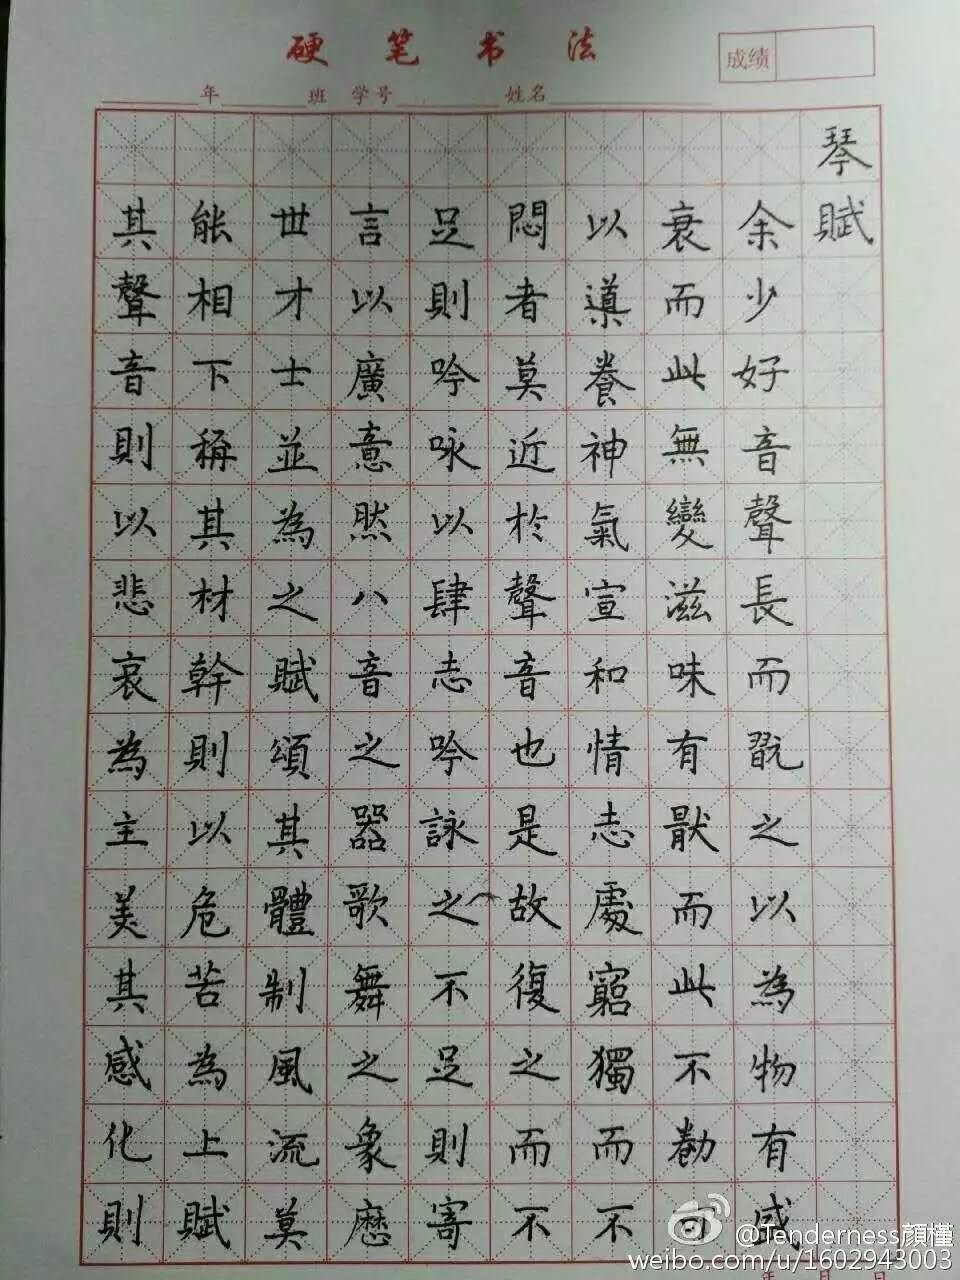 硬笔书法
成绩
年 班 学号 姓名
琴賦
余少好音聲長而翫之以為物有盛
衰而此無變滋味有猒而此不勌可
以導養神氣宣和情志處窮獨而不
悶者莫近於聲音也是故復之而不
足則吟咏以肆志吟詠之不足則寄
言以廣意然八音之器歌舞之象歷
世才士並為之賦頌其體制風流莫
能相下稱其材幹則以危苦為上賦
其聲音則以悲哀為主美其感化則
年 月 日
@Tenderness顔槿
weibo.com/u/1602943003